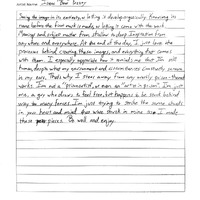 Artist Name: Isaac "Boo" Essay
"Seeing the image in its entirety, or letting it develop organically. Knowing its
name before the first mark is made, or letting it come with the work
Musings and subject matter from shallow to deep. Inspiration from
anywhere and everywhere. At the end of the day, I just love the
process behind creating these images, and everything that comes
with them. I especially appreciate how it reminds me that I'm still
human, despite what my environment and circumstances constantly scream
in my ears. That's why I steer away from any overtly prison-themed
works. I'm not a "prison artist", or even an "artist in prison". I'm just
me, a guy who dares to feel free, but happens to be stuck behind
way too many fences. I'm just trying to strike the same chords
in your heart and mind that were struck in mine as I made
these pieces. Be well and enjoy.